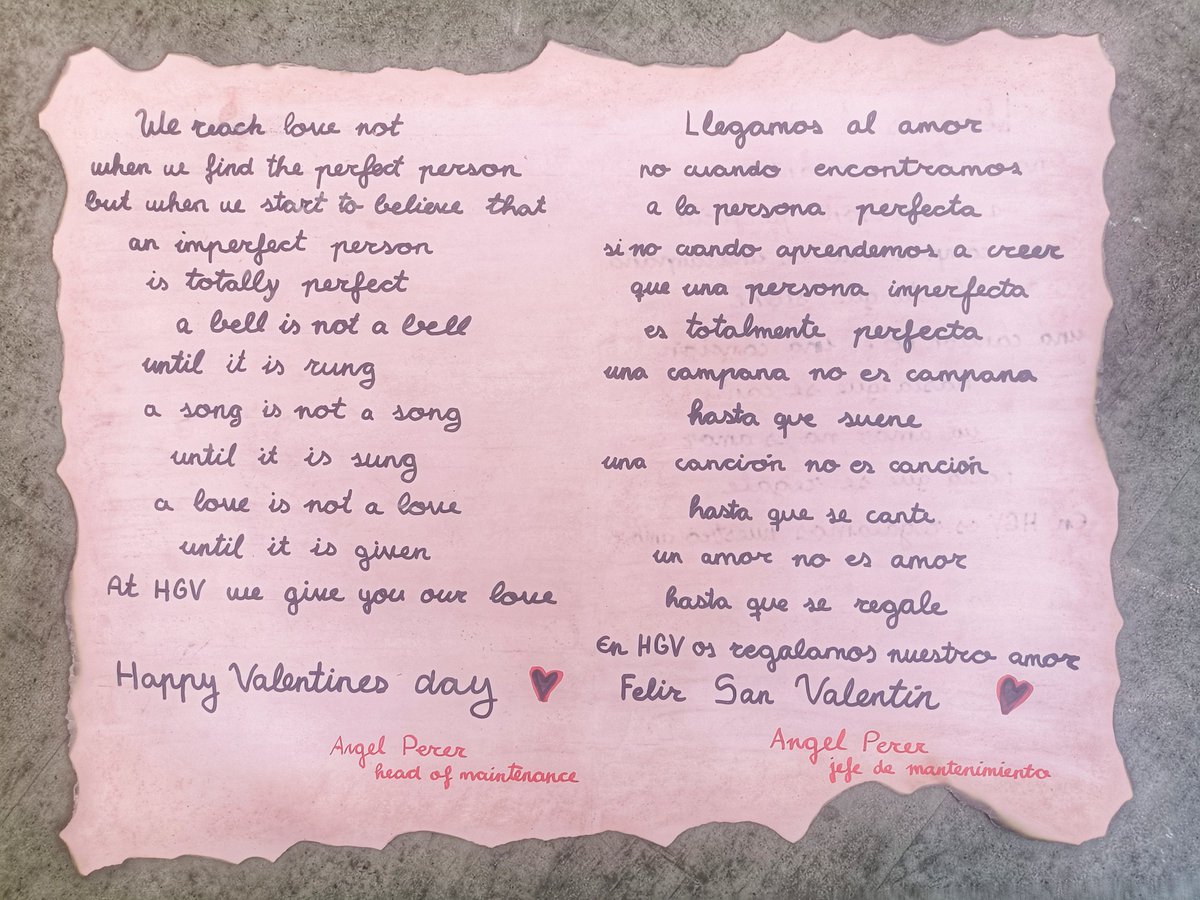 We reach love not
when we find the perfect person
but when we start to believe that
an imperfect person
is totally perfect
a bell is not a bell
until it is rung
a song is not a song
until it is sung
a love is not a love
until it is given
At HGV we give you our love
Happy Valentines day
Angel Perez
head of maintenance
Llegamos al amor
no cuando encontramos
a la persona perfecta
si no cuando aprendemos a creer
que una persona imperfecta
es totalmente perfecta
una campana no es campana
hasta que suene
una canción no es canción
hasta que se cante
un amor no es amor
hasta que se regale
En HGV os regalamos nuestro amor
Feliz San Valentín
Angel Perez
jefe de mantenimiento